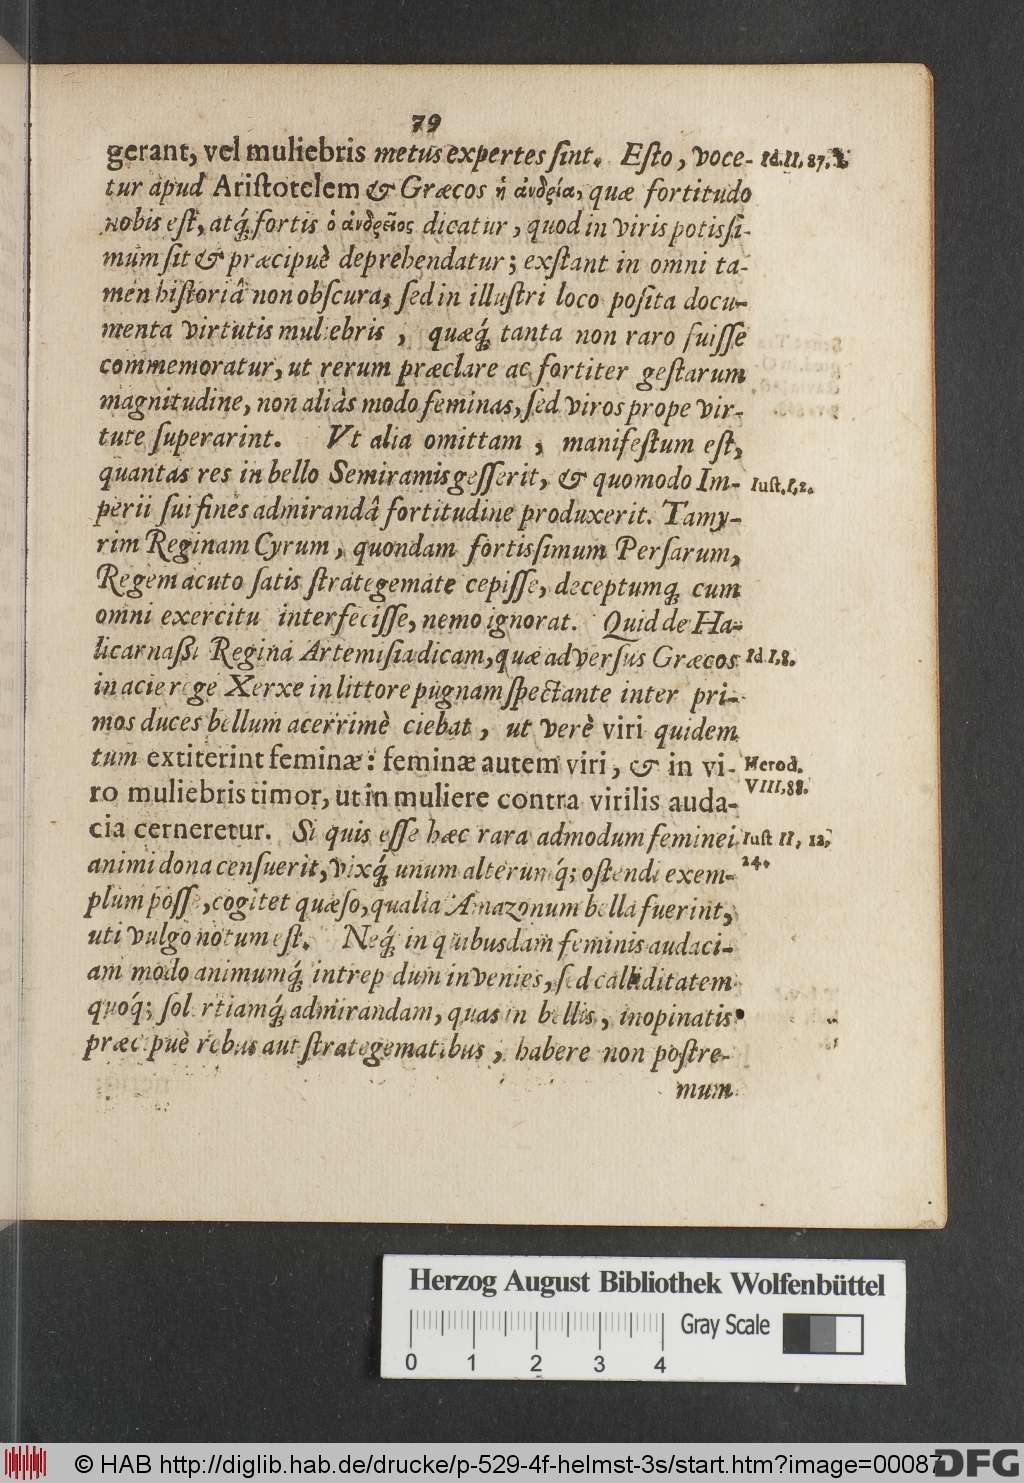 79
gerant, vel muliebris metus expertes sint. Esto, voce- Id. II, 87. 2
tur apud Aristotelem & Græcos ἡ ἀνδρεία, quæ fortitudo
nobis est, atq́; fortis ὁ ἀνδρεῖος dicatur, quod in viris potissi-
mùm sit & præcipuè deprehendatur; exstant in omni ta-
men historiâ non obscura, sed in illustri loco posita docu-
menta virtutis muliebris, quæq́; tanta non raro fuisse
commemoratur, ut rerum præclare ac fortiter gestarum
magnitudine, non aliàs modo feminas, sed viros prope vir-
tute superarint. Vt alia omittam, manifestum est,
quantas res in bello Semiramis gesserit, & quomodo Im- Iust. I, 2.
perii sui fines admirandâ fortitudine produxerit. Tamy-
rim Reginam Cyrum, quondam fortissimum Persarum,
Regem acuto satis strategemate cepisse, deceptumq; cum
omni exercitu interfecisse, nemo ignorat. Quid de Ha-
licarnassi Reginâ Artemisia dicam, quæ adversus Græcos Id. I, 8.
in acie rege Xerxe in littore pugnam spectante inter pri-
mos duces bellum acerrimè ciebat, ut verè viri quidem
tum extiterint feminæ: feminæ autem viri, & in vi- Herod.
VIII, 88.
ro muliebris timor, ut in muliere contra virilis auda-
cia cerneretur. Si quis esse hæc rara admodum feminei Iust II, 12,
24.
animi dona censuerit, vixq́; unum alterumq́; ostendi exem-
plum posse, cogitet quæso, qualia Amazonum bella fuerint,
uti vulgo notum est. Neq́; in quibusdam feminis audaci-
am modo animumq́; intrepidum invenies, sed calliditatem
quoq́; solertiamq́; admirandam, quas in bellis, inopinatis
præcipuè rebus aut strategematibus, habere non postre-
mum
Herzog August Bibliothek Wolfenbüttel
Gray Scale
0 1 2 3 4
© HAB http://diglib.hab.de/drucke/p-529-4f-helmst-3s/start.htm?image=00087
DFG